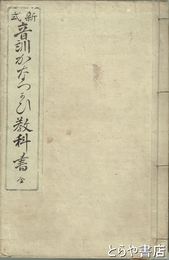 新式
音訓かなつかひ教科書 全
とらや書店